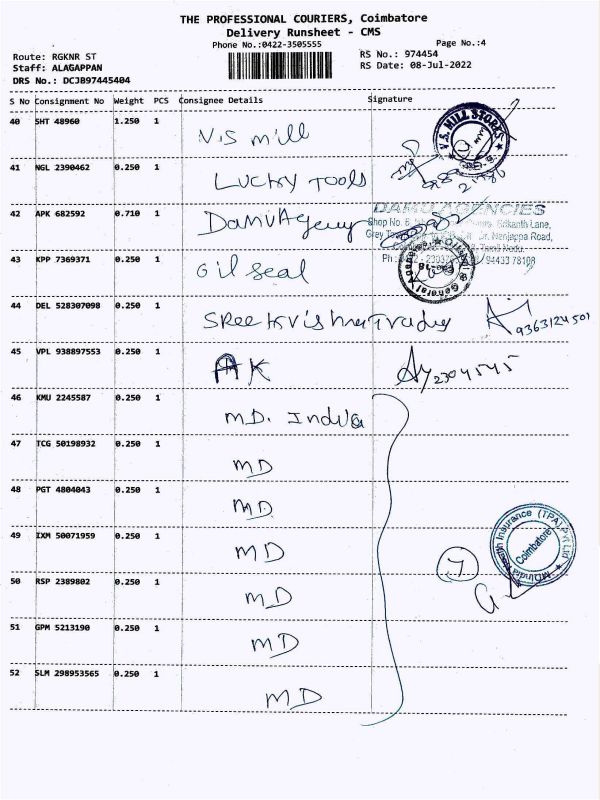 THE PROFESSIONAL COURIERS, Coimbatore
Delivery Runsheet - CMS
Phone No.:0422-3505555
Page No.:4
Route: RGKNR ST
RS No.: 974454
Staff: ALAGAPPAN
RS Date: 08-Jul-2022
DRS No.: DCJB97445404
S No Consignment No Weight PCS Consignee Details Signature
40 SHT 48960 1.250 1 V.S mill
V.S. MILL STORES
41 NGL 2390462 0.250 1 LUCKY TOOLS
42 APK 682592 0.710 1 Damu Agency
DAMU AGENCIES
Shop No. 6,
Lane,
Dr. Nanjappa Road,
Tamil Nadu.
/ 94433 78108
43 KPP 7369371 0.250 1 Oil seal
General
44 DEL 528307098 0.250 1 SReekrishna Tradus 9363124501
45 VPL 938897553 0.250 1 AK 2304545
46 KMU 2245587 0.250 1 M.D. India
47 TCG 50198932 0.250 1 MD
48 PGT 4804043 0.250 1 MD
49 IXM 50071959 0.250 1 MD
MDIndia Health Insurance (TPA) Pvt Ltd
Coimbatore
7
50 RSP 2389802 0.250 1 MD
51 GPM 5213190 0.250 1 MD
52 SLM 298953565 0.250 1 MD